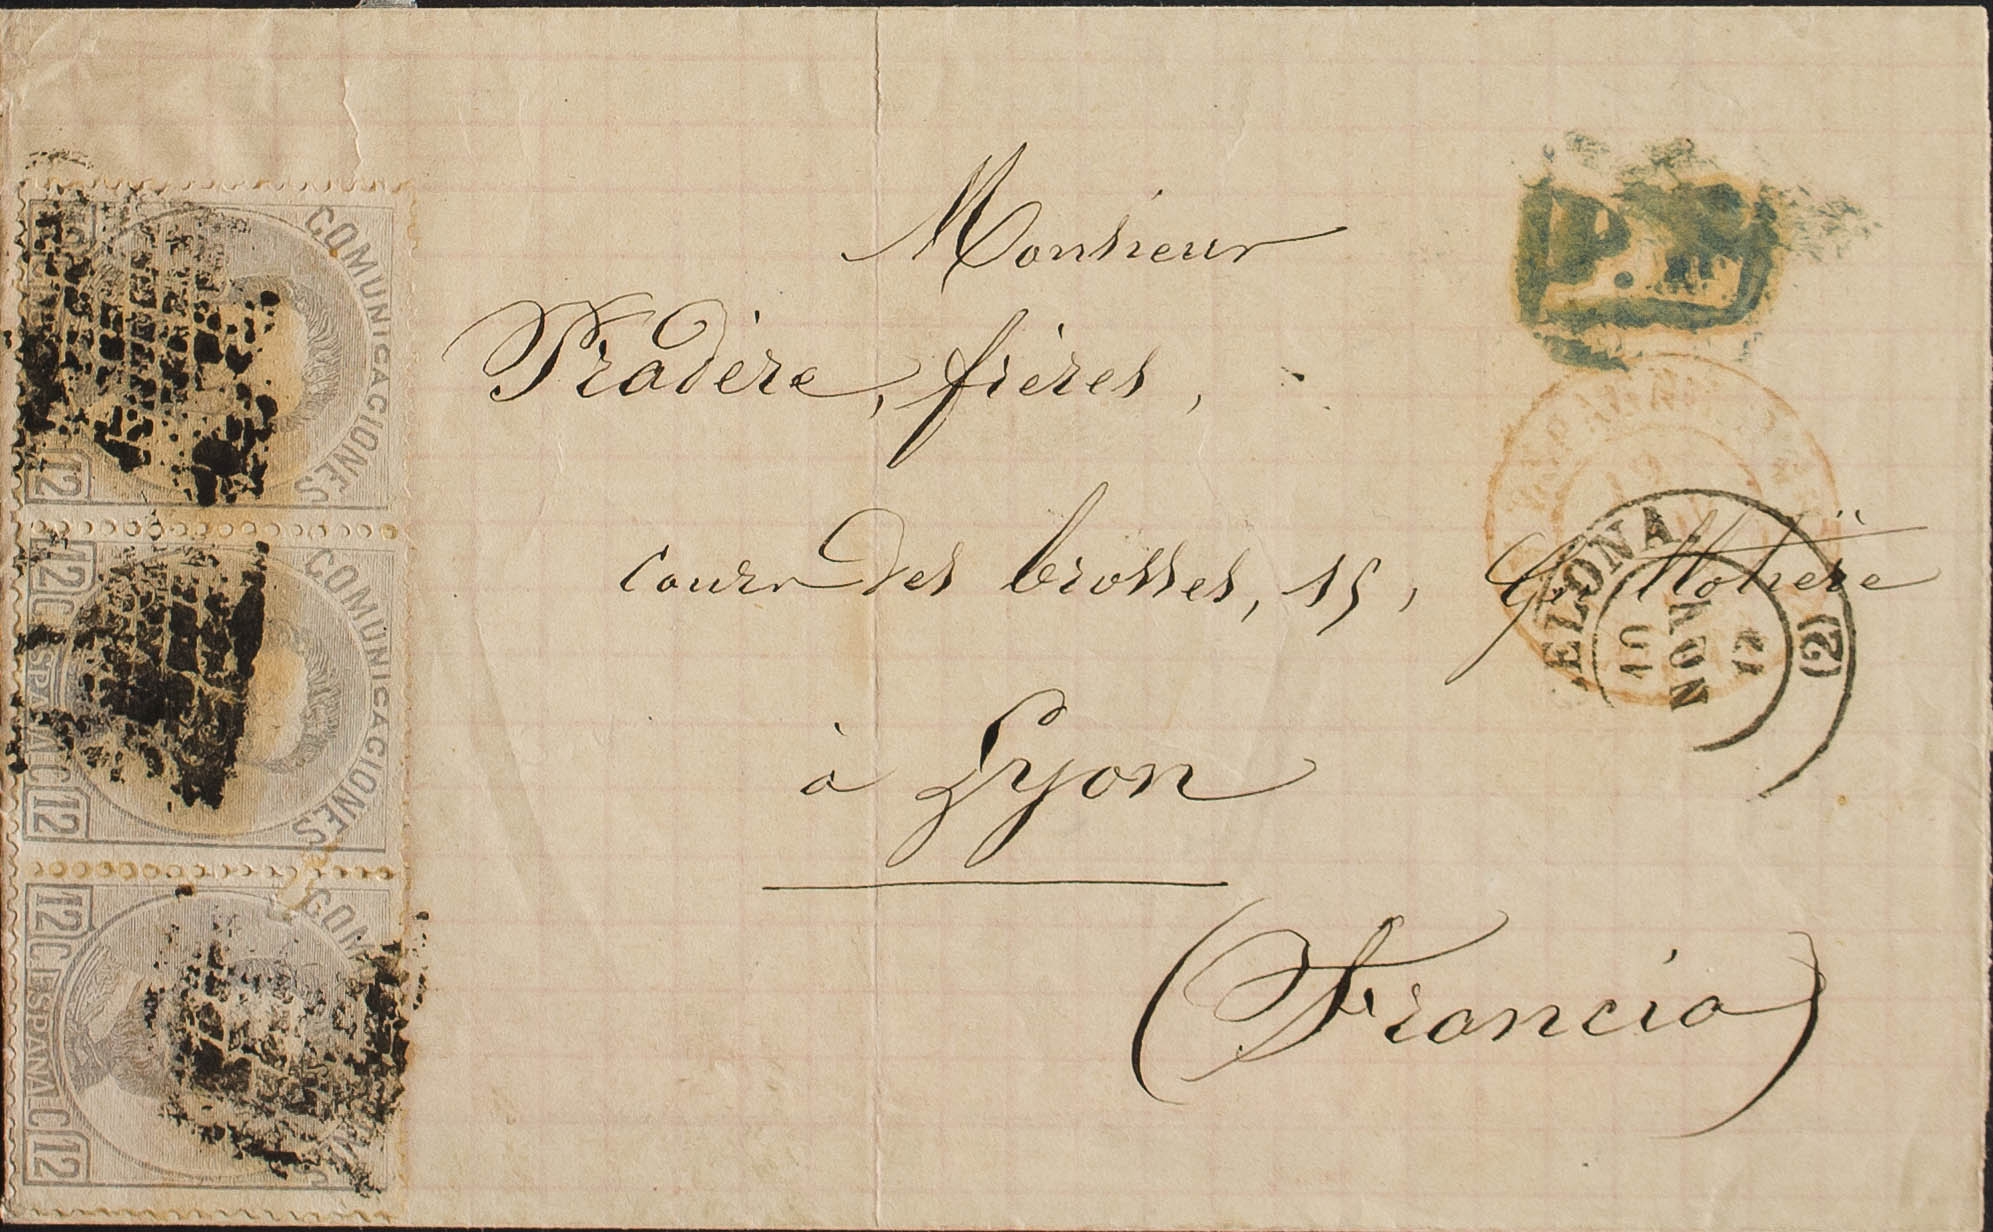 Monsieur
Pradère, frères,
cours des brosses, 15, Guillotière
à Lyon
(Francia)
COMUNICACIONES
12
COMUNICACIONES
12 C ESPAÑA C 12
12 C ESPAÑA C 12
P.D.
ELONA
10
NOV
(2)